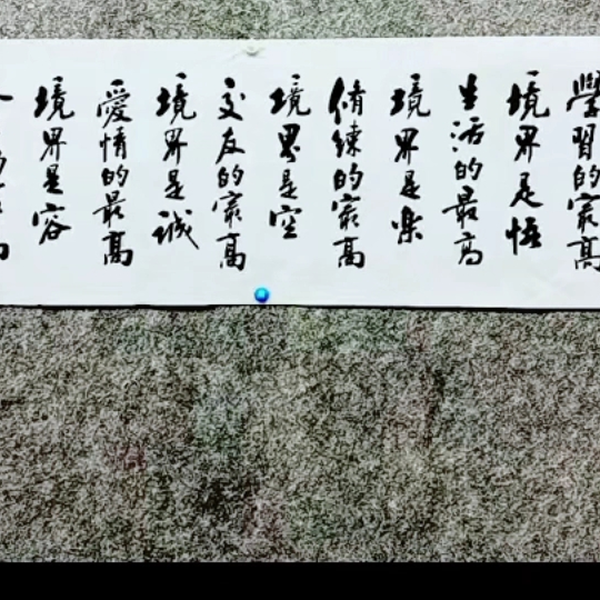 學習的最高
境界是悟
生活的最高
境界是樂
脩練的最高
境界是空
交友的最高
境界是誠
愛情的最高
境界是容